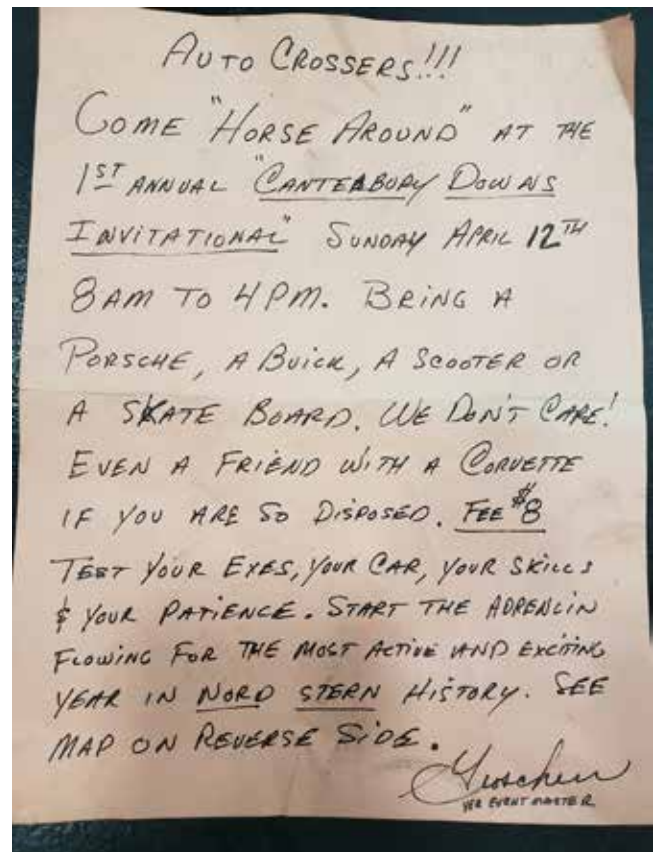 AUTO CROSSERS!!!
COME "HORSE AROUND" AT THE
1ST ANNUAL "CANTERBURY DOWNS
INVITATIONAL" SUNDAY APRIL 12TH
8AM TO 4PM. BRING A
PORSCHE, A BUICK, A SCOOTER OR
A SKATE BOARD. WE DON'T CARE!
EVEN A FRIEND WITH A CORVETTE
IF YOU ARE SO DISPOSED. FEE $8
TEST YOUR EYES, YOUR CAR, YOUR SKILLS
& YOUR PATIENCE. START THE ADRENLIN
FLOWING FOR THE MOST ACTIVE AND EXCITING
YEAR IN NORD STERN HISTORY. SEE
MAP ON REVERSE SIDE.
YER EVENT MASTER